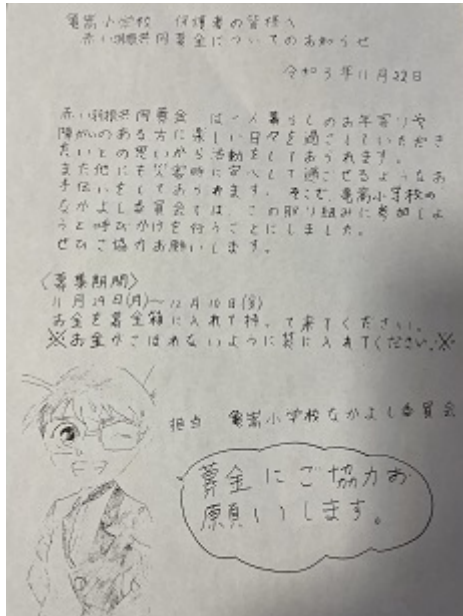 亀嵩小学校　保護者の皆様へ
赤い羽根共同募金についてのお知らせ
令和3年11月22日
赤い羽根共同募金は一人暮らしのお年寄りや
障がいのある方に楽しい日々を過ごしていただき
たいとの思いから活動をしておられます。
また他にも災害時に安心して過ごせるようなお
手伝いをしておられます。そこで、亀嵩小学校の
なかよし委員会では、この取り組みに参加しよ
うと呼びかけを行うことにしました。
ぜひご協力お願いします。
〈募集期間〉
11月29日(月)～12月10日(金)
お金を募金箱に入れて持って来てください。
※お金がこぼれないように袋に入れてください。※
担当　亀嵩小学校なかよし委員会
募金にご協力お
願いします。